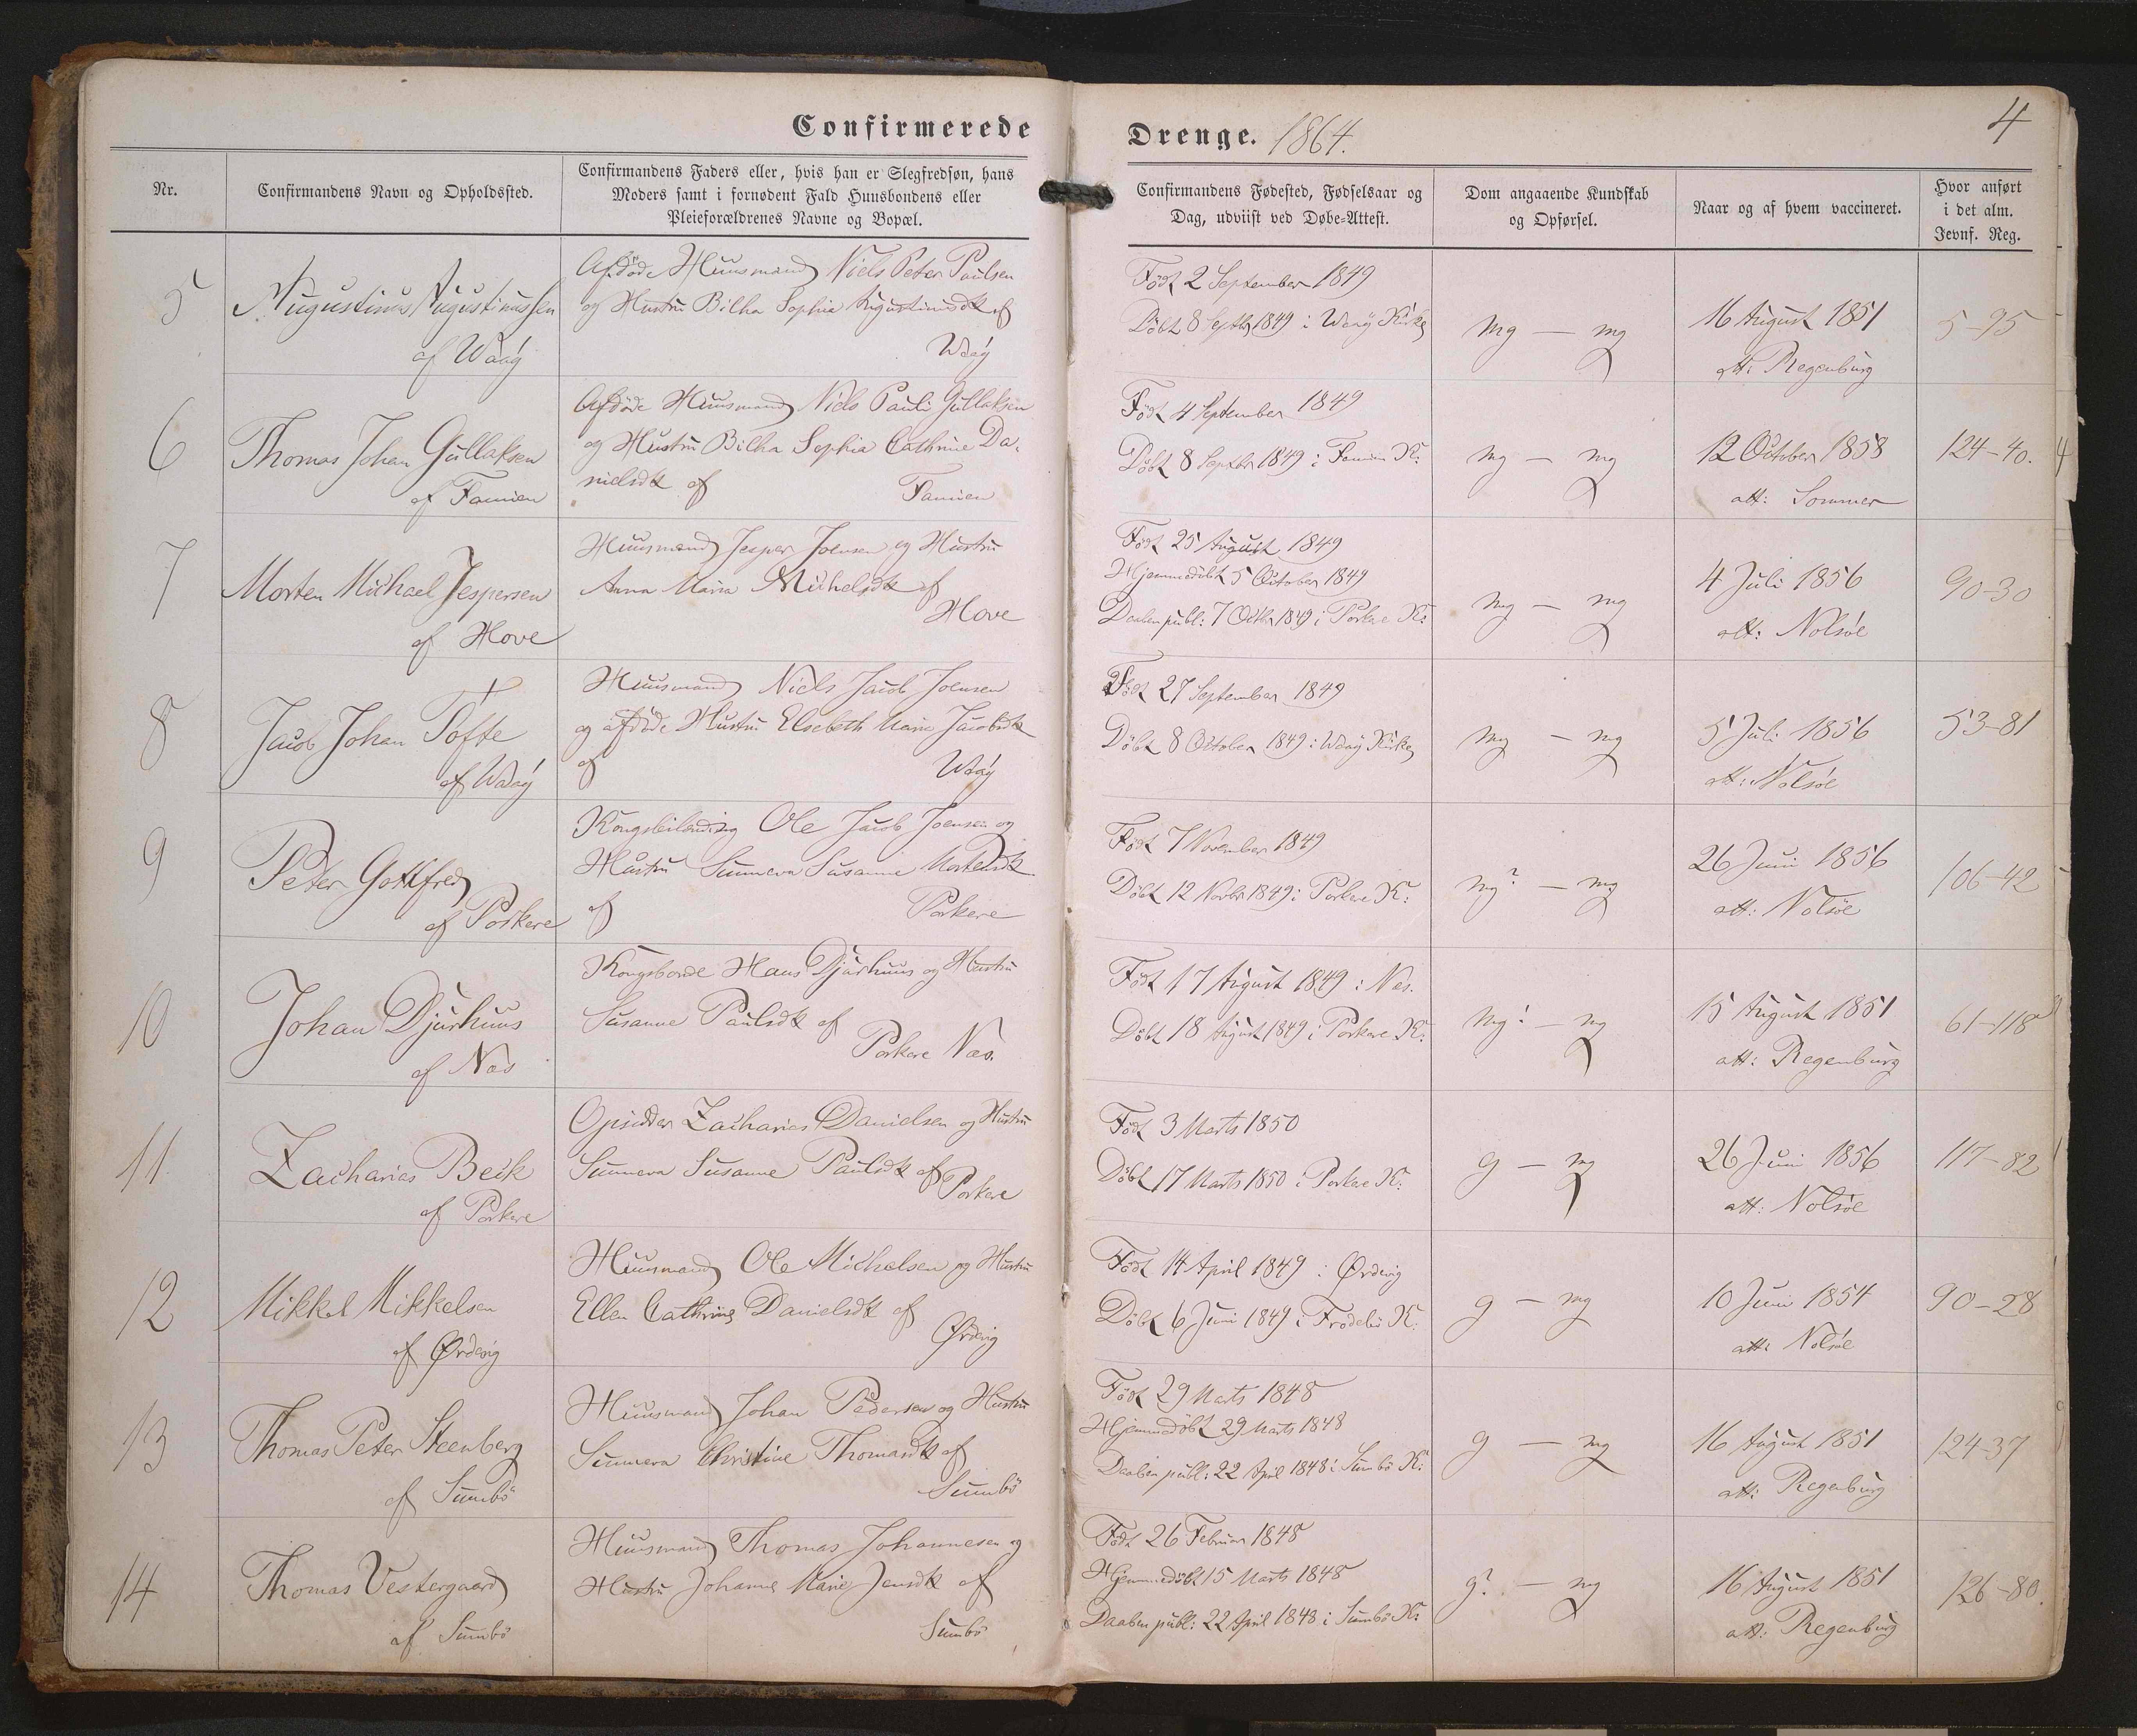 Confirmerede Drenge. 1864.
4
Nr.
Confirmandens Navn og Opholdssted.
Confirmandens Faders eller, hvis han er Slegfredsøn, hans
Moders samt i fornødent Fald Huusbondens eller
Pleieforældrenes Navne og Bopæl.
Confirmandens Fødested, Fødselsaar og
Dag, udviist ved Døbe-Attest.
Dom angaaende Kundskab
og Opførsel.
Naar og af hvem vaccineret.
Hvor anført
i det alm.
Jevnf. Reg.
5
Augustinus Augustinussen
af Waag
Afdöde Huusmand Niels Peter Paulsen
og Hustru Bilha Sophia Augustinusdtr af
Waag
Født 2 September 1849
Döbt 8 Septbr 1849 i Waag Kirke
mg — mg
16 August 1851
att: Regenburg
5-95
6
Thomas Johan Gullaksen
af Famien
Afdöde Huusmand Niels Pauli Gullaksen
og Hustru Bilha Sophia Cathrine Da-
nielsdtr af Famien
Født 4 September 1849
Döbt 8 Septbr 1849 i Famien K:
mg — mg
12 October 1858
att: Sommer
124-40.
7
Morten Michael Jespersen
af Hove
Huusmand Jesper Joensen og Hustru
Anna Maria Michelsdtr af
Hove
Født 25 August 1849
Hjemmedöbt 5 October 1849
Daaben publ: 7 Octbr 1849 i Porkere K:
mg — mg
4 Juli 1856
att: Nolsöe
90-30
8
Jacob Johan Tofte
af Waag
Huusmand Niels Jacob Joensen
og afdöde Hustru Elsebeth Marie Jacobsdtr
af Waag
Født 27 September 1849
Döbt 8 October 1849 i Waag Kirke
mg — mg
5 Juli 1856
att: Nolsöe
53-81
9
Peder Gottfred
af Porkere
Ole Jacob Joensen og
Hustru Sunneva Susanne Mortensdtr
af Porkere
Født 7 November 1849
Döbt 12 Novbr 1849 i Porkere K:
mg? — mg
26 Juni 1856
att: Nolsöe
106-42
10
Johan Djurhuus
af Næs
Kongsbonde Hans Djurhuus og Hustru
Susanne Paulsdtr af
Porkere Næs.
Født 17 August 1849 i Næs.
Döbt 18 August 1849 i Porkere K:
mg! — mg
15 August 1851
att: Regenburg
61-118
11.
Zacharias Beck
af Porkere
Opsidder Zacharias Danielsen og Hustru
Sunneva Susanne Paulsdtr af Porkere
Født 3 Marts 1850
Döbt 17 Marts 1850 i Porkere K:
g — mg
26 Juni 1856
att: Nolsöe
117-82
12
Mikkel Mikkelsen
af Ørdevig
Huusmand Ole Michelsen og Hustru
Ellen Cathrine Danielsdtr af
Ørdevig
Født 14 April 1849 i Ørdevig
Döbt 6 Juni 1849 i Frodebö K:
g — mg
10 Juni 1854
att: Nolsöe
90-28
13
Thomas Peter Steenberg
af Sumbö
Huusmand Johan Pedersen og Hustru
Sunneva Christine Thomasdtr af
Sumbö
Født 29 Marts 1848
Hjemmedöbt 29 Marts 1848
Daaben publ: 22 April 1848 i Sumbö K:
g — mg
16 August 1851
att: Regenburg
124-37
14
Thomas Vestergaard
af Sumbö
Huusmand Thomas Johannesen og
Hustru Johanne Marie Jensdtr af
Sumbö
Født 26 Februar 1848
Hjemmedöbt 15 Marts 1848
Daaben publ: 22 April 1848 i Sumbö K:
g? — mg
16 August 1851
att: Regenburg
126-80.